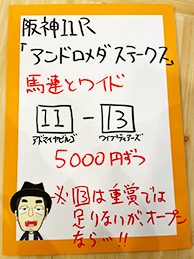 阪神11R
「アンドロメダステークス」
馬連とワイド
11 - 13
アドマイヤビルゴ ワイプティアーズ
5000円ずつ
※13は重賞では
足りないが、オープン
なら…!!